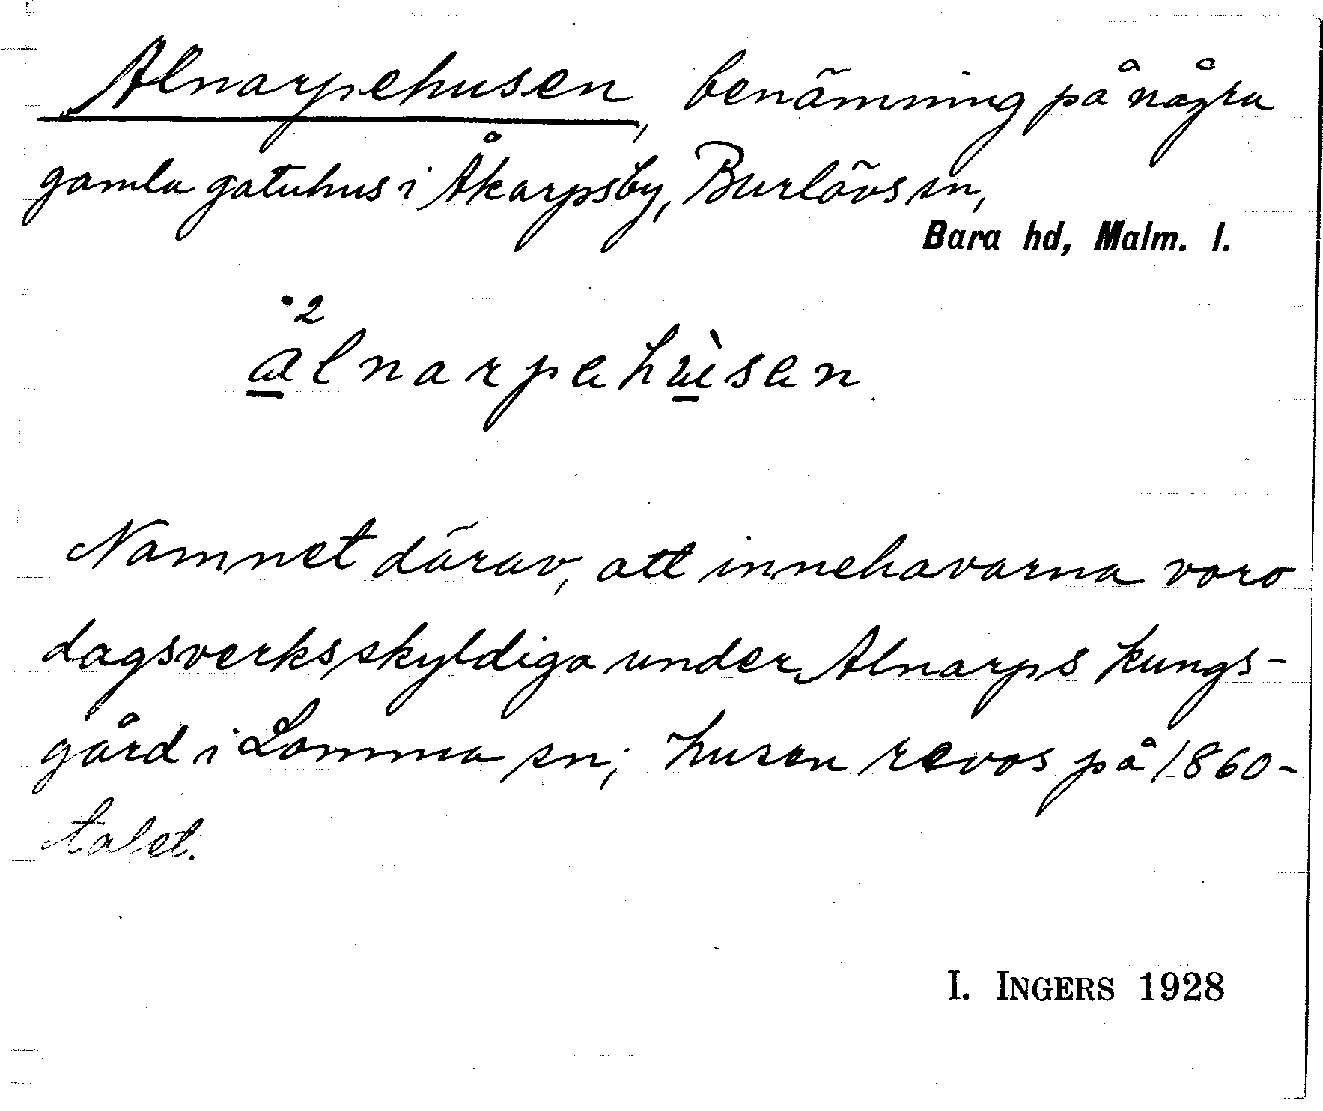 Alnarpehusen, benämning på några
gamla gatuhus i Åkarpsby, Burlövs sn,
Bara hd, Malm. l.
Namnet därav, att innehavarna voro
dagsverksskyldiga under Alnarps kungs-
gård i Lomma sn; husen revos på 1860-
talet.
I. INGERS 1928